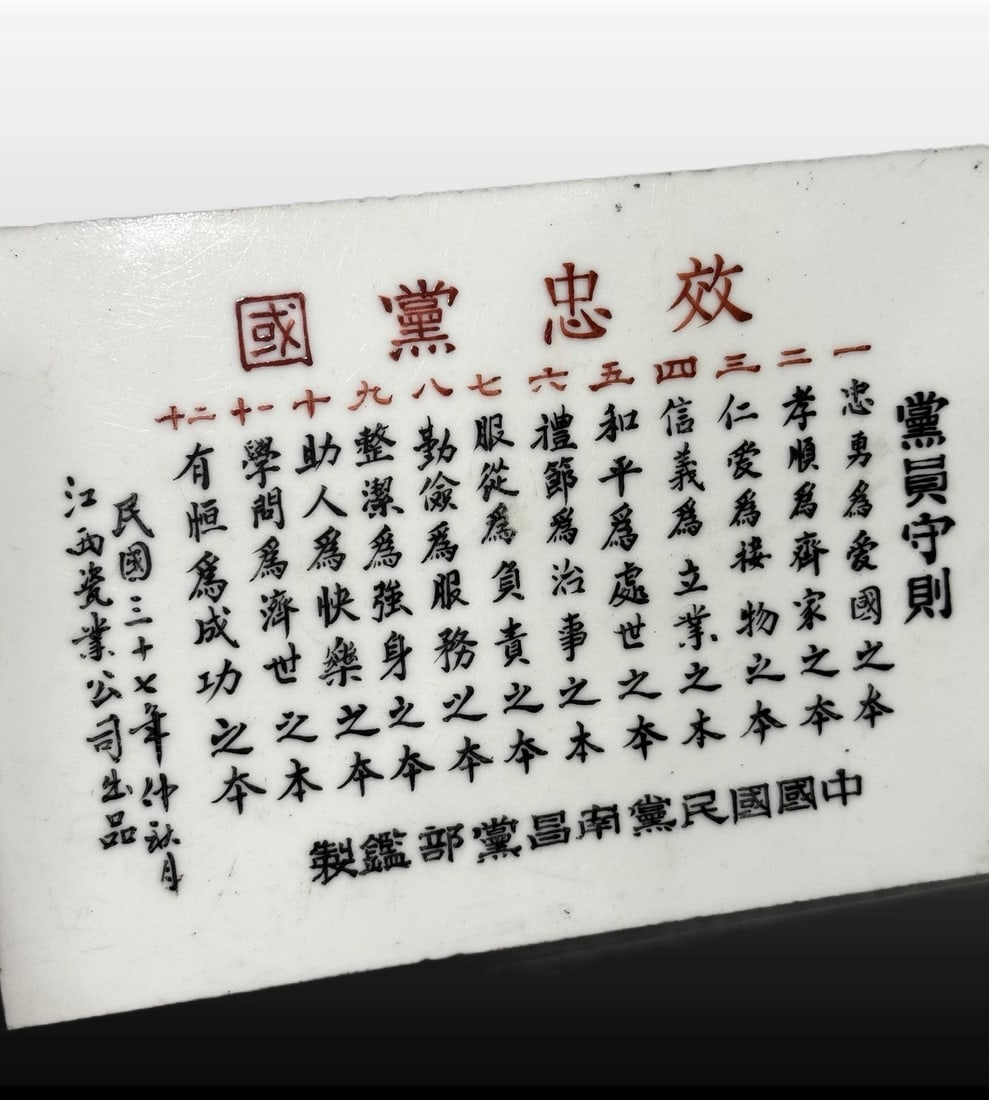 效忠黨國
黨員守則
一 忠勇為愛國之本
二 孝順為齊家之本
三 仁愛為接物之本
四 信義為立業之本
五 和平為處世之本
六 禮節為治事之本
七 服從為負責之本
八 勤儉為服務以本
九 整潔為強身之本
十 助人為快樂之本
十一 學問為濟世之本
十二 有恒為成功之本
中國國民黨南昌黨部鑑製
民國三十七年仲秋月
江西瓷業公司出品